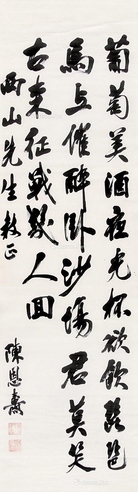 葡萄美酒夜光杯欲飲琵琶
馬上催醉臥沙場君莫笑
古來征戰幾人回
西山先生教正
陳恩燾